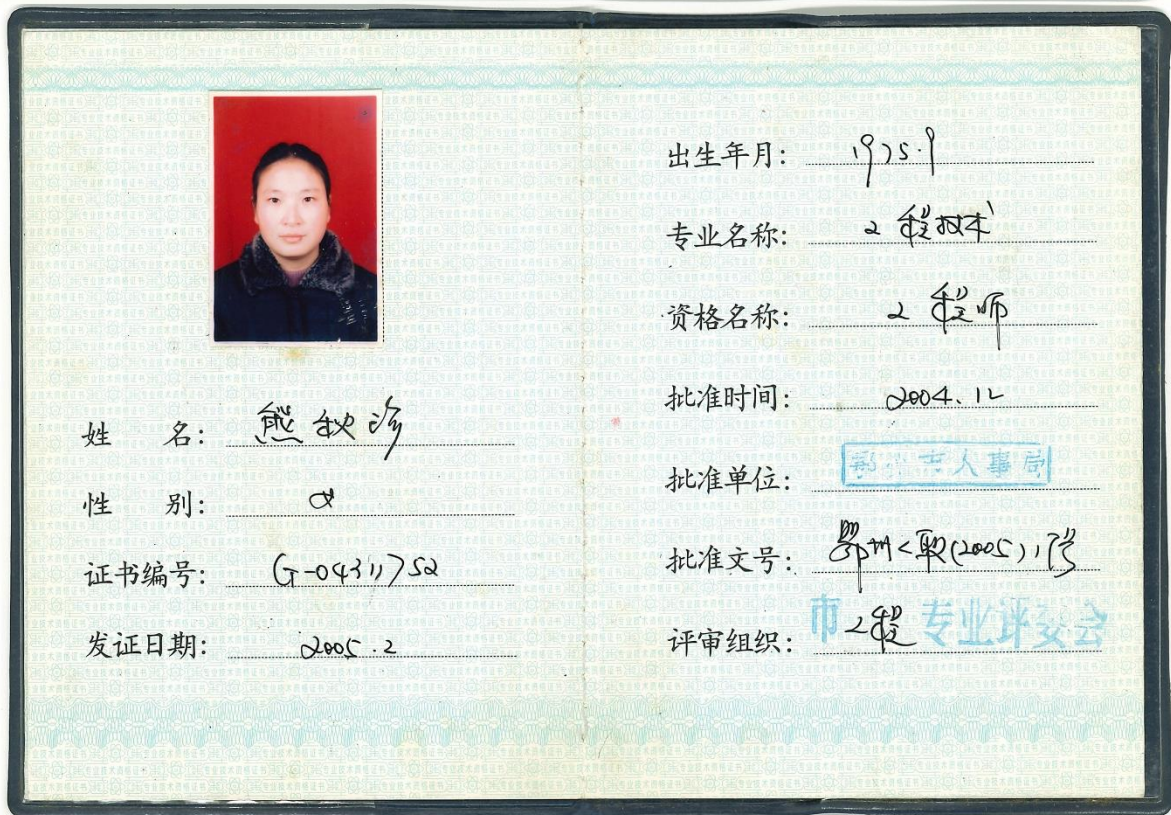 姓 名: 熊秋珍
性 别: 女
证书编号: G-04311752
发证日期: 2005.2
出生年月: 1975.9
专业名称: 工程技术
资格名称: 工程师
批准时间: 2004.12
批准单位: 鄂州市人事局
批准文号: 鄂州人职(2005)1号
评审组织: 市工程专业评委会